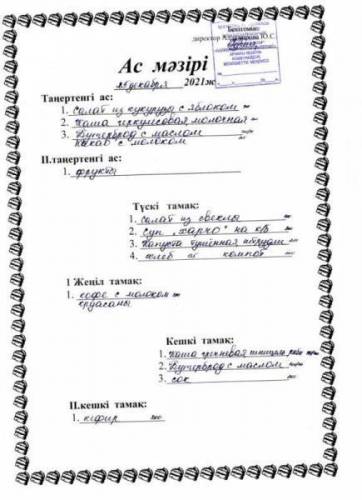 Бекітемін:
директор
Ас мәзірі
декабря 2021ж.
Таңертенгі ас:
1. Салат из кукурузы с яблоком
2. Каша геркулесовая молочная
3. Бутерброд с маслом
какао с молоком
II.таңертенгі ас:
1. фрукты
Түскі тамақ:
1. Салат из свеклы
2. Суп „харчо" на к/б
3. Капуста тушенная
4. хлеб компот
1 Жеңіл тамақ:
1. кофе с молоком
круасаны
Кешкі тамақ:
1. Каша гречневая
2. Бутерброд с маслом
3. сок
II.кешкі тамақ:
1. кефир